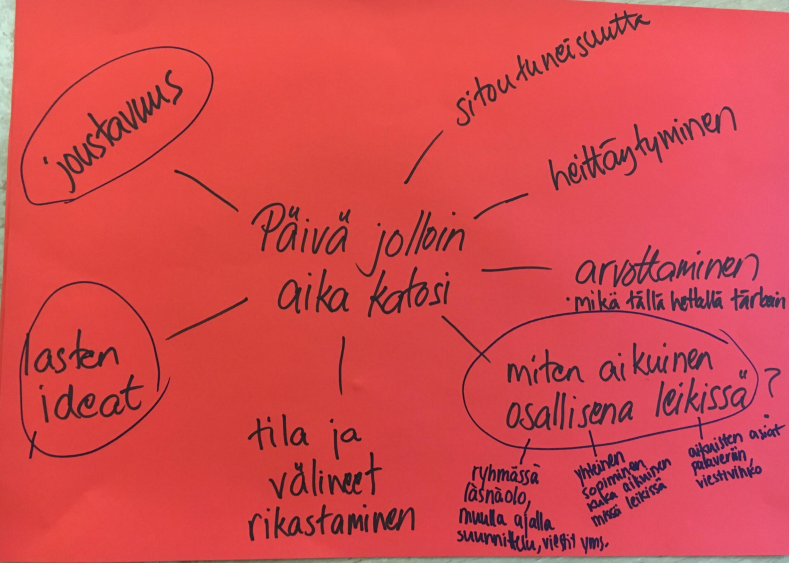 joustavuus
sitoutuneisuutta
heittäytyminen
Päivä jolloin
aika katosi
arvottaminen
· mikä tällä hetkellä tärkein
lasten
ideat
miten aikuinen
osallisena leikissä ?
tila ja
välineet
rikastaminen
ryhmässä
läsnäolo,
muulla ajalla
suunnittelu, viestit yms.
yhteinen
sopiminen
kuka aikuinen
missä leikissä
aikuisten asiat
palaveriin,
viestivihko